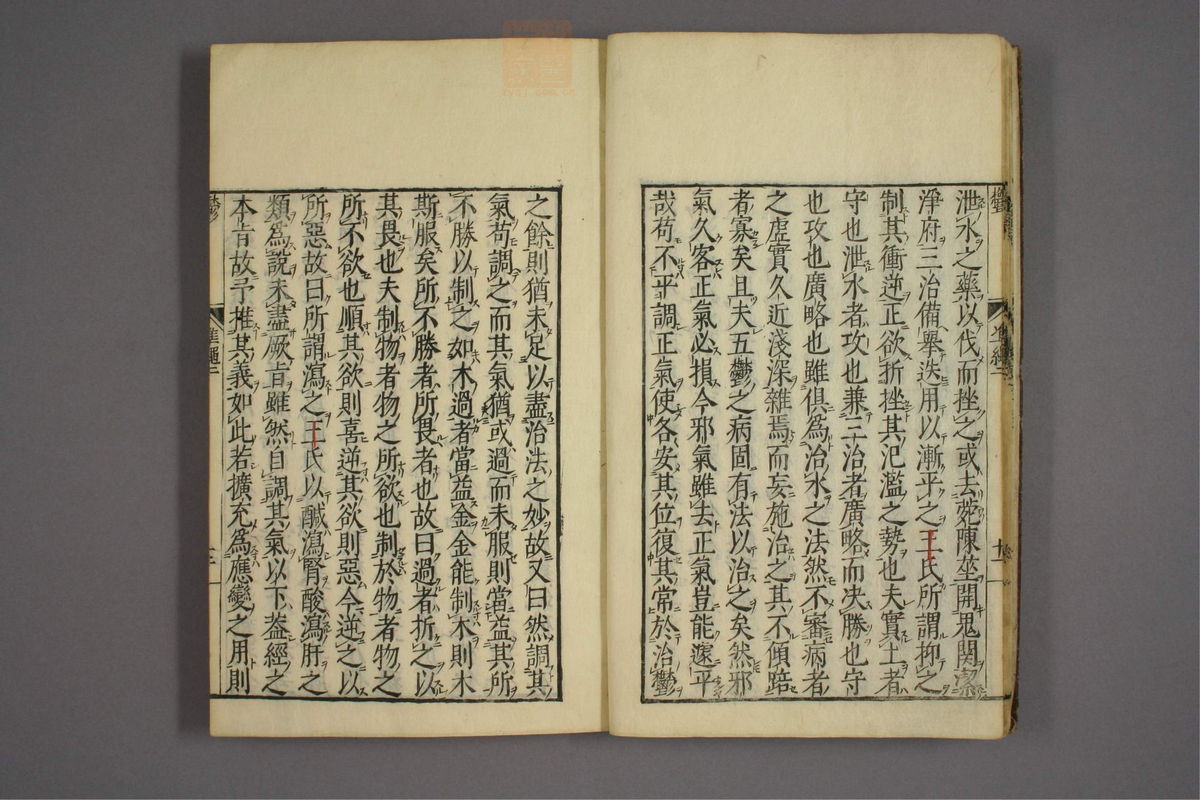 泄水之藥以伐而挫之或去菀陳莝開鬼関潔
淨府三治備擧迭用以漸平之王氏所謂抑之
制其衝逆正欲折挫其汜濫之勢也夫實土者
守也泄水者攻也兼三治者廣略而决勝也守
也攻也廣略也雖俱爲治水之法然不審病者
之虚實久近淺深雜焉而妄施治之其不傾踣
者寡矣且夫五鬱之病固有法以治之矣然邪
氣久客正氣必損今邪氣雖去正氣豈能遽平
哉苟不平調正氣使各安其位復其常於治鬱
之餘則猶未足以盡治法之妙故又曰然調其
氣苟調之而其氣猶或過而未服則當益其所
不勝以制之如木過者當益金金能制木則木
斯服矣所不勝者所畏者也故曰過者折之以
其畏也夫制物者物之所欲也制於物者物之
所不欲也順其欲則喜逆其欲則惡今逆之以
所惡故曰所謂瀉之王氏以醎瀉腎酸瀉肝之
類爲說未盡厥㫖雖然自調其氣以下葢經之
本㫖故予推其義如此若擴充爲應變之用則